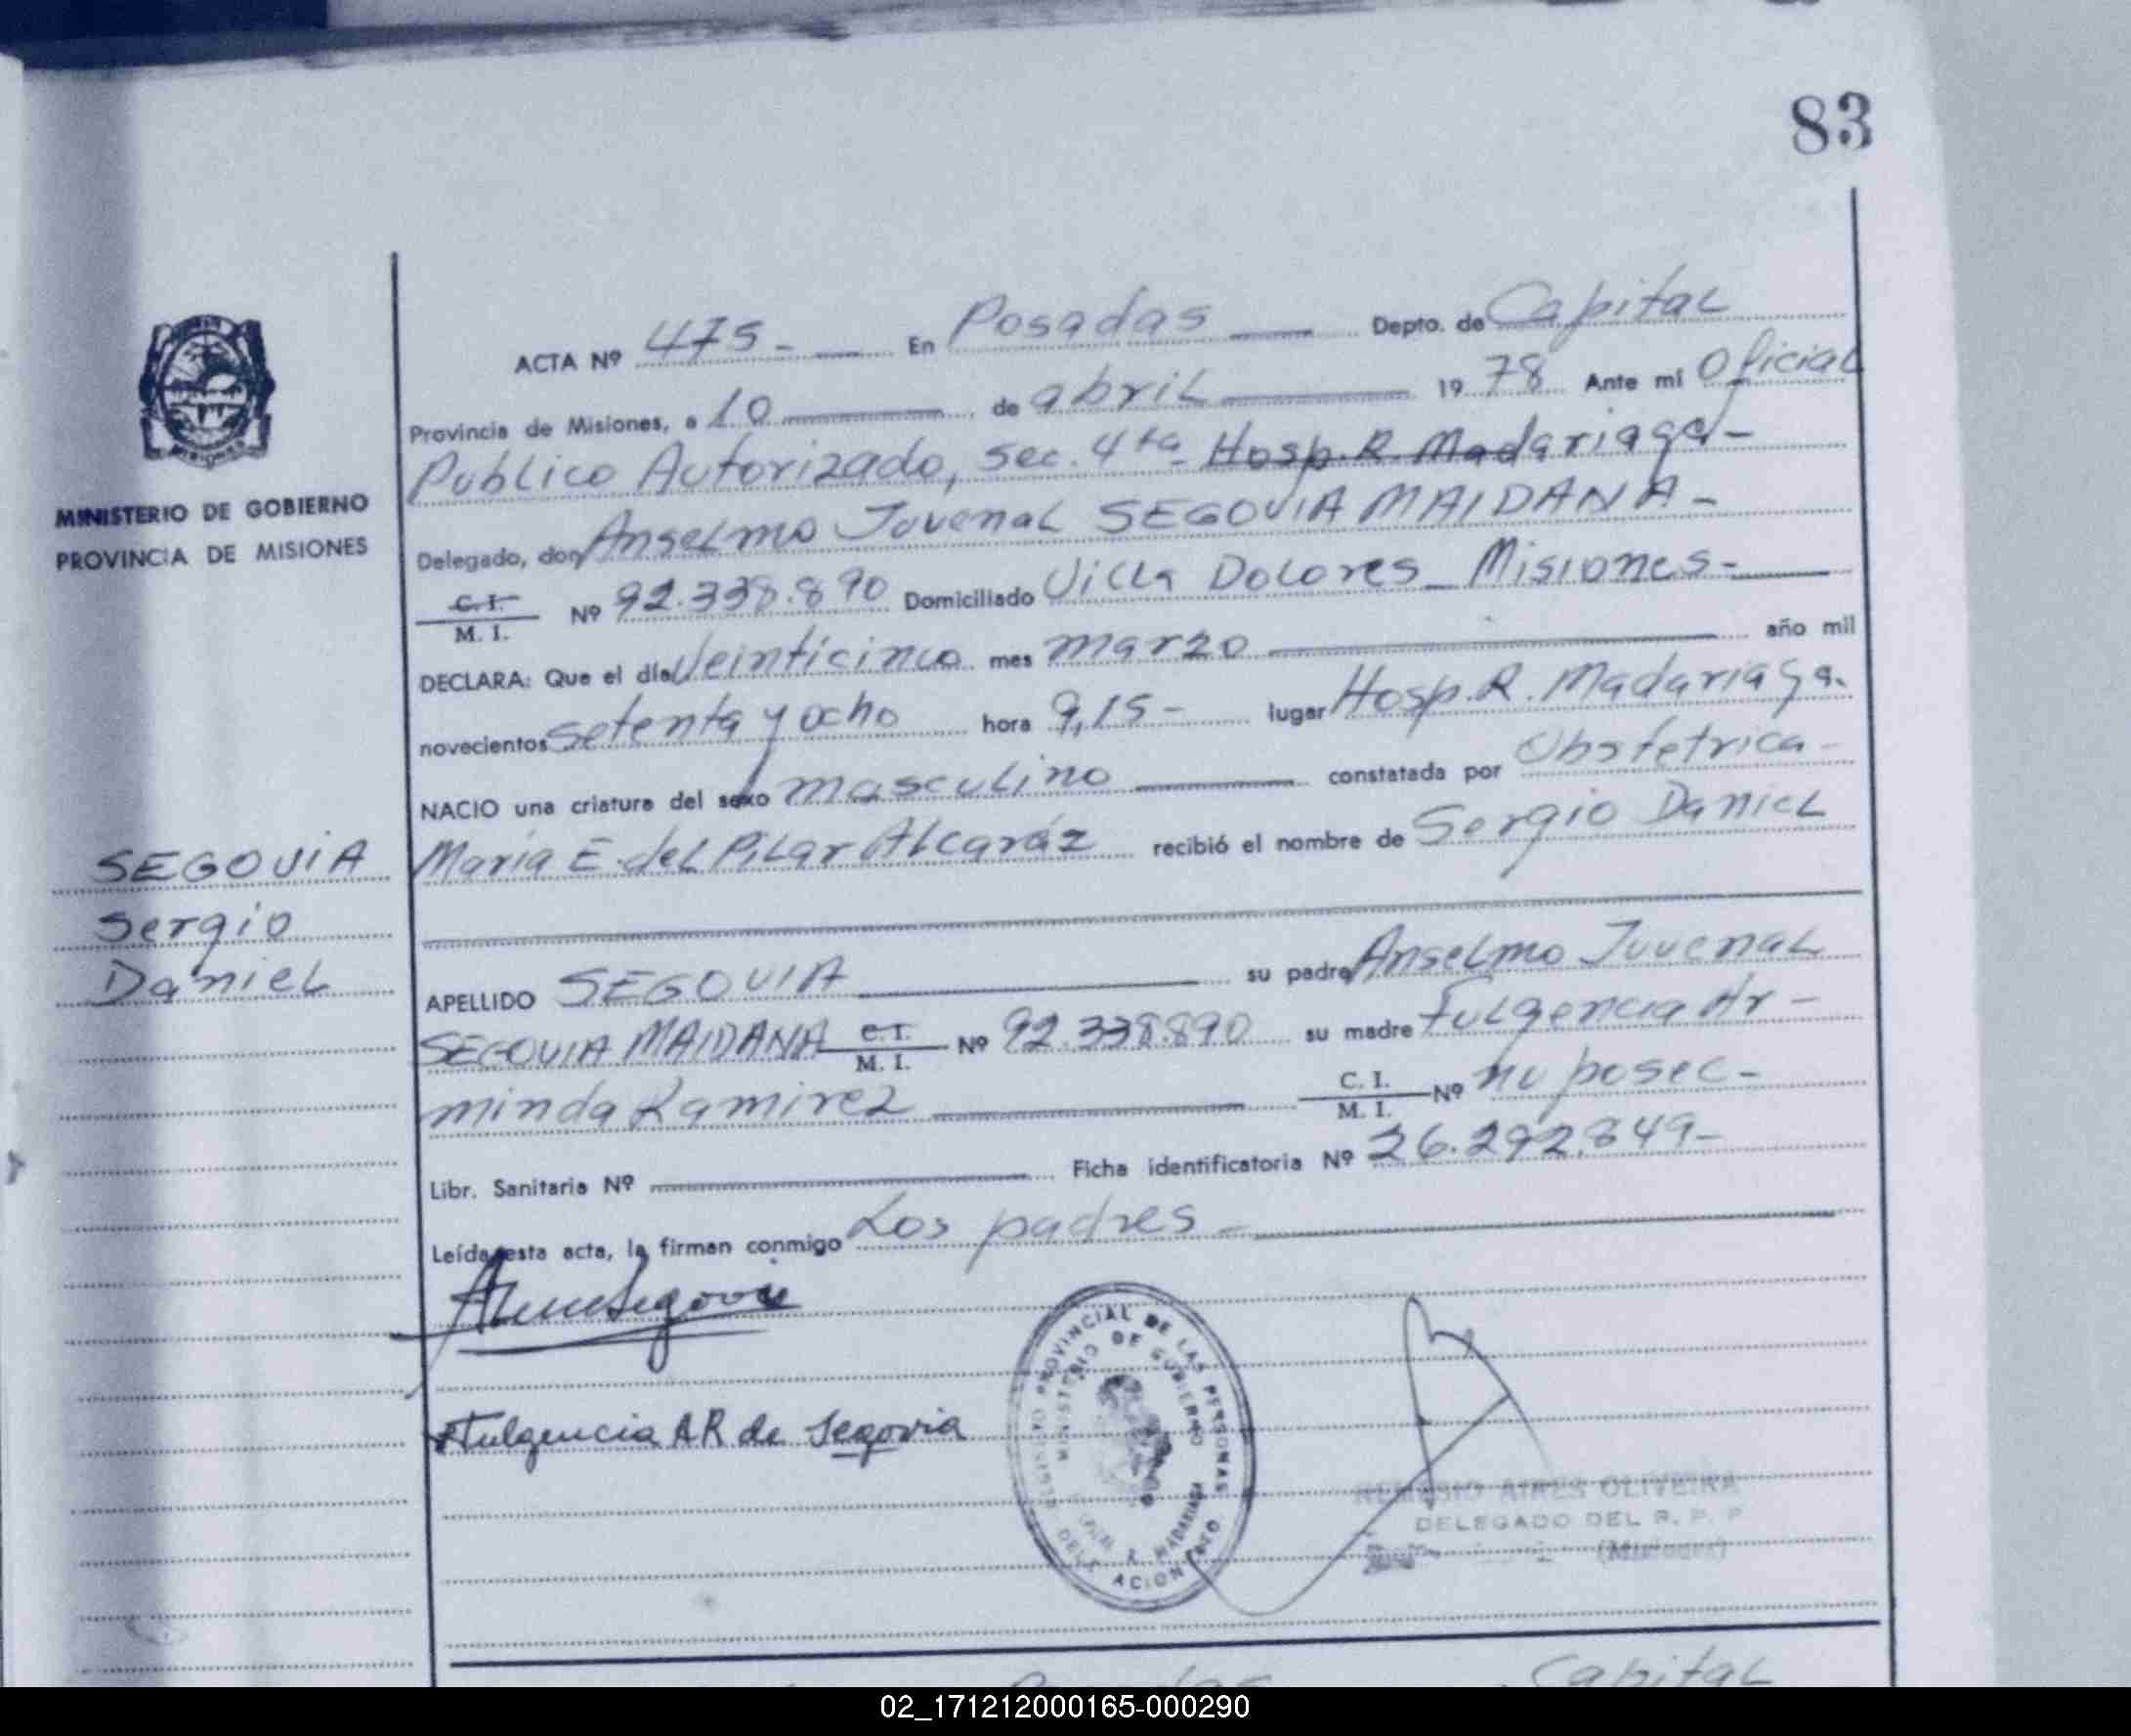 83
MINISTERIO DE GOBIERNO
PROVINCIA DE MISIONES
SEGOVIA
Sergio
Daniel
ACTA Nº 475 - En Posadas Depto. de Capital
Provincia de Misiones, a 10 de abril 19 78 Ante mi Oficial
Publico Autorizado, sec. 4ta Hosp. R. Madariaga -
Delegado, don Anselmo Juvenal SEGOVIA MAIDANA -
C. I. / M. I. Nº 92.338.890 Domiciliado Villa Dolores - Misiones -
DECLARA: Que el día Veinticinco mes marzo año mil
novecientos setenta y ocho hora 9,15 - lugar Hosp. R. Madariaga.
NACIO una criatura del sexo masculino constatada por Obstetrica -
Maria E. del Pilar Alcaráz recibió el nombre de Sergio Daniel
APELLIDO SEGOVIA su padre Anselmo Juvenal
SEGOVIA MAIDANA C. I. / M. I. Nº 92.338.890 su madre Fulgencia Ar -
minda Ramirez C. I. / M. I. Nº no posee -
Libr. Sanitaria Nº Ficha identificatoria Nº 26.292.849 -
Leída esta acta, la firman conmigo Los padres -
Fulgencia AR de Segovia
REGISTRO PROVINCIAL DE LAS PERSONAS
MINISTERIO DE GOBIERNO
REMESIO AIRES OLIVEIRA
DELEGADO DEL R. P. P
(Misiones)
Posadas Capital
02_171212000165-000290